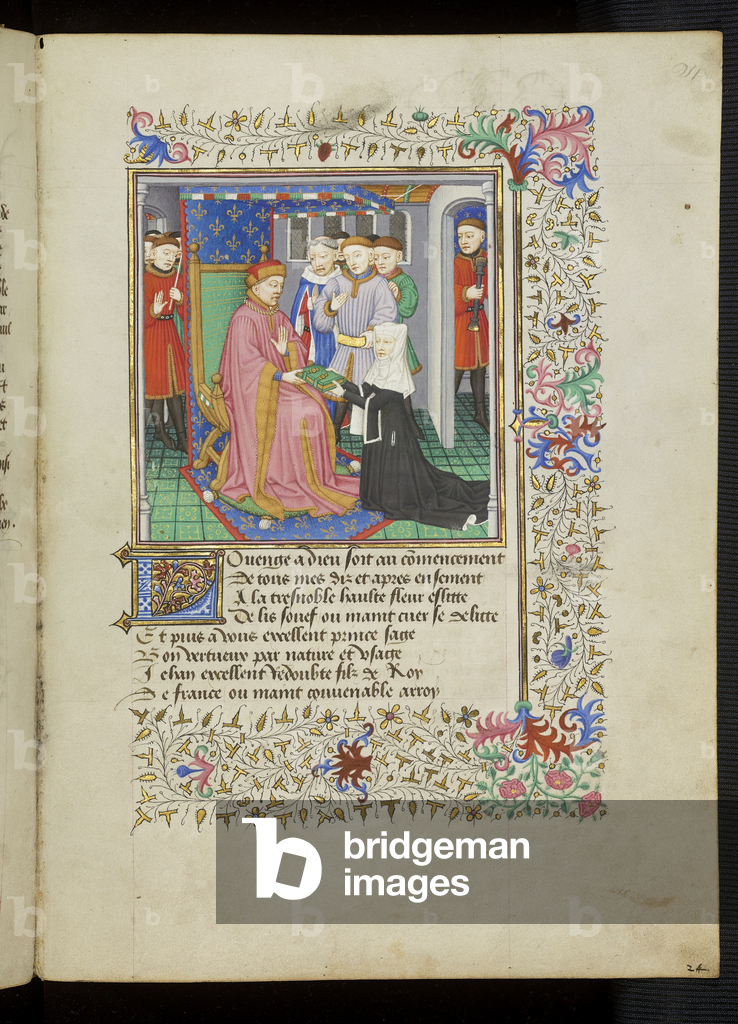 ouenge a dieu soit au cõmencement
De tous mes diz et apres ensement
A la tresnoble haulte fleur eslitte
De lis souef ou maint cuer se delitte
Et puis a vous excellent prince sage
Bon vertueux par nature et vsage
Jehan excellent redoubte filz de Roy
De france ou maint conuenable arroy
bridgeman
images
24